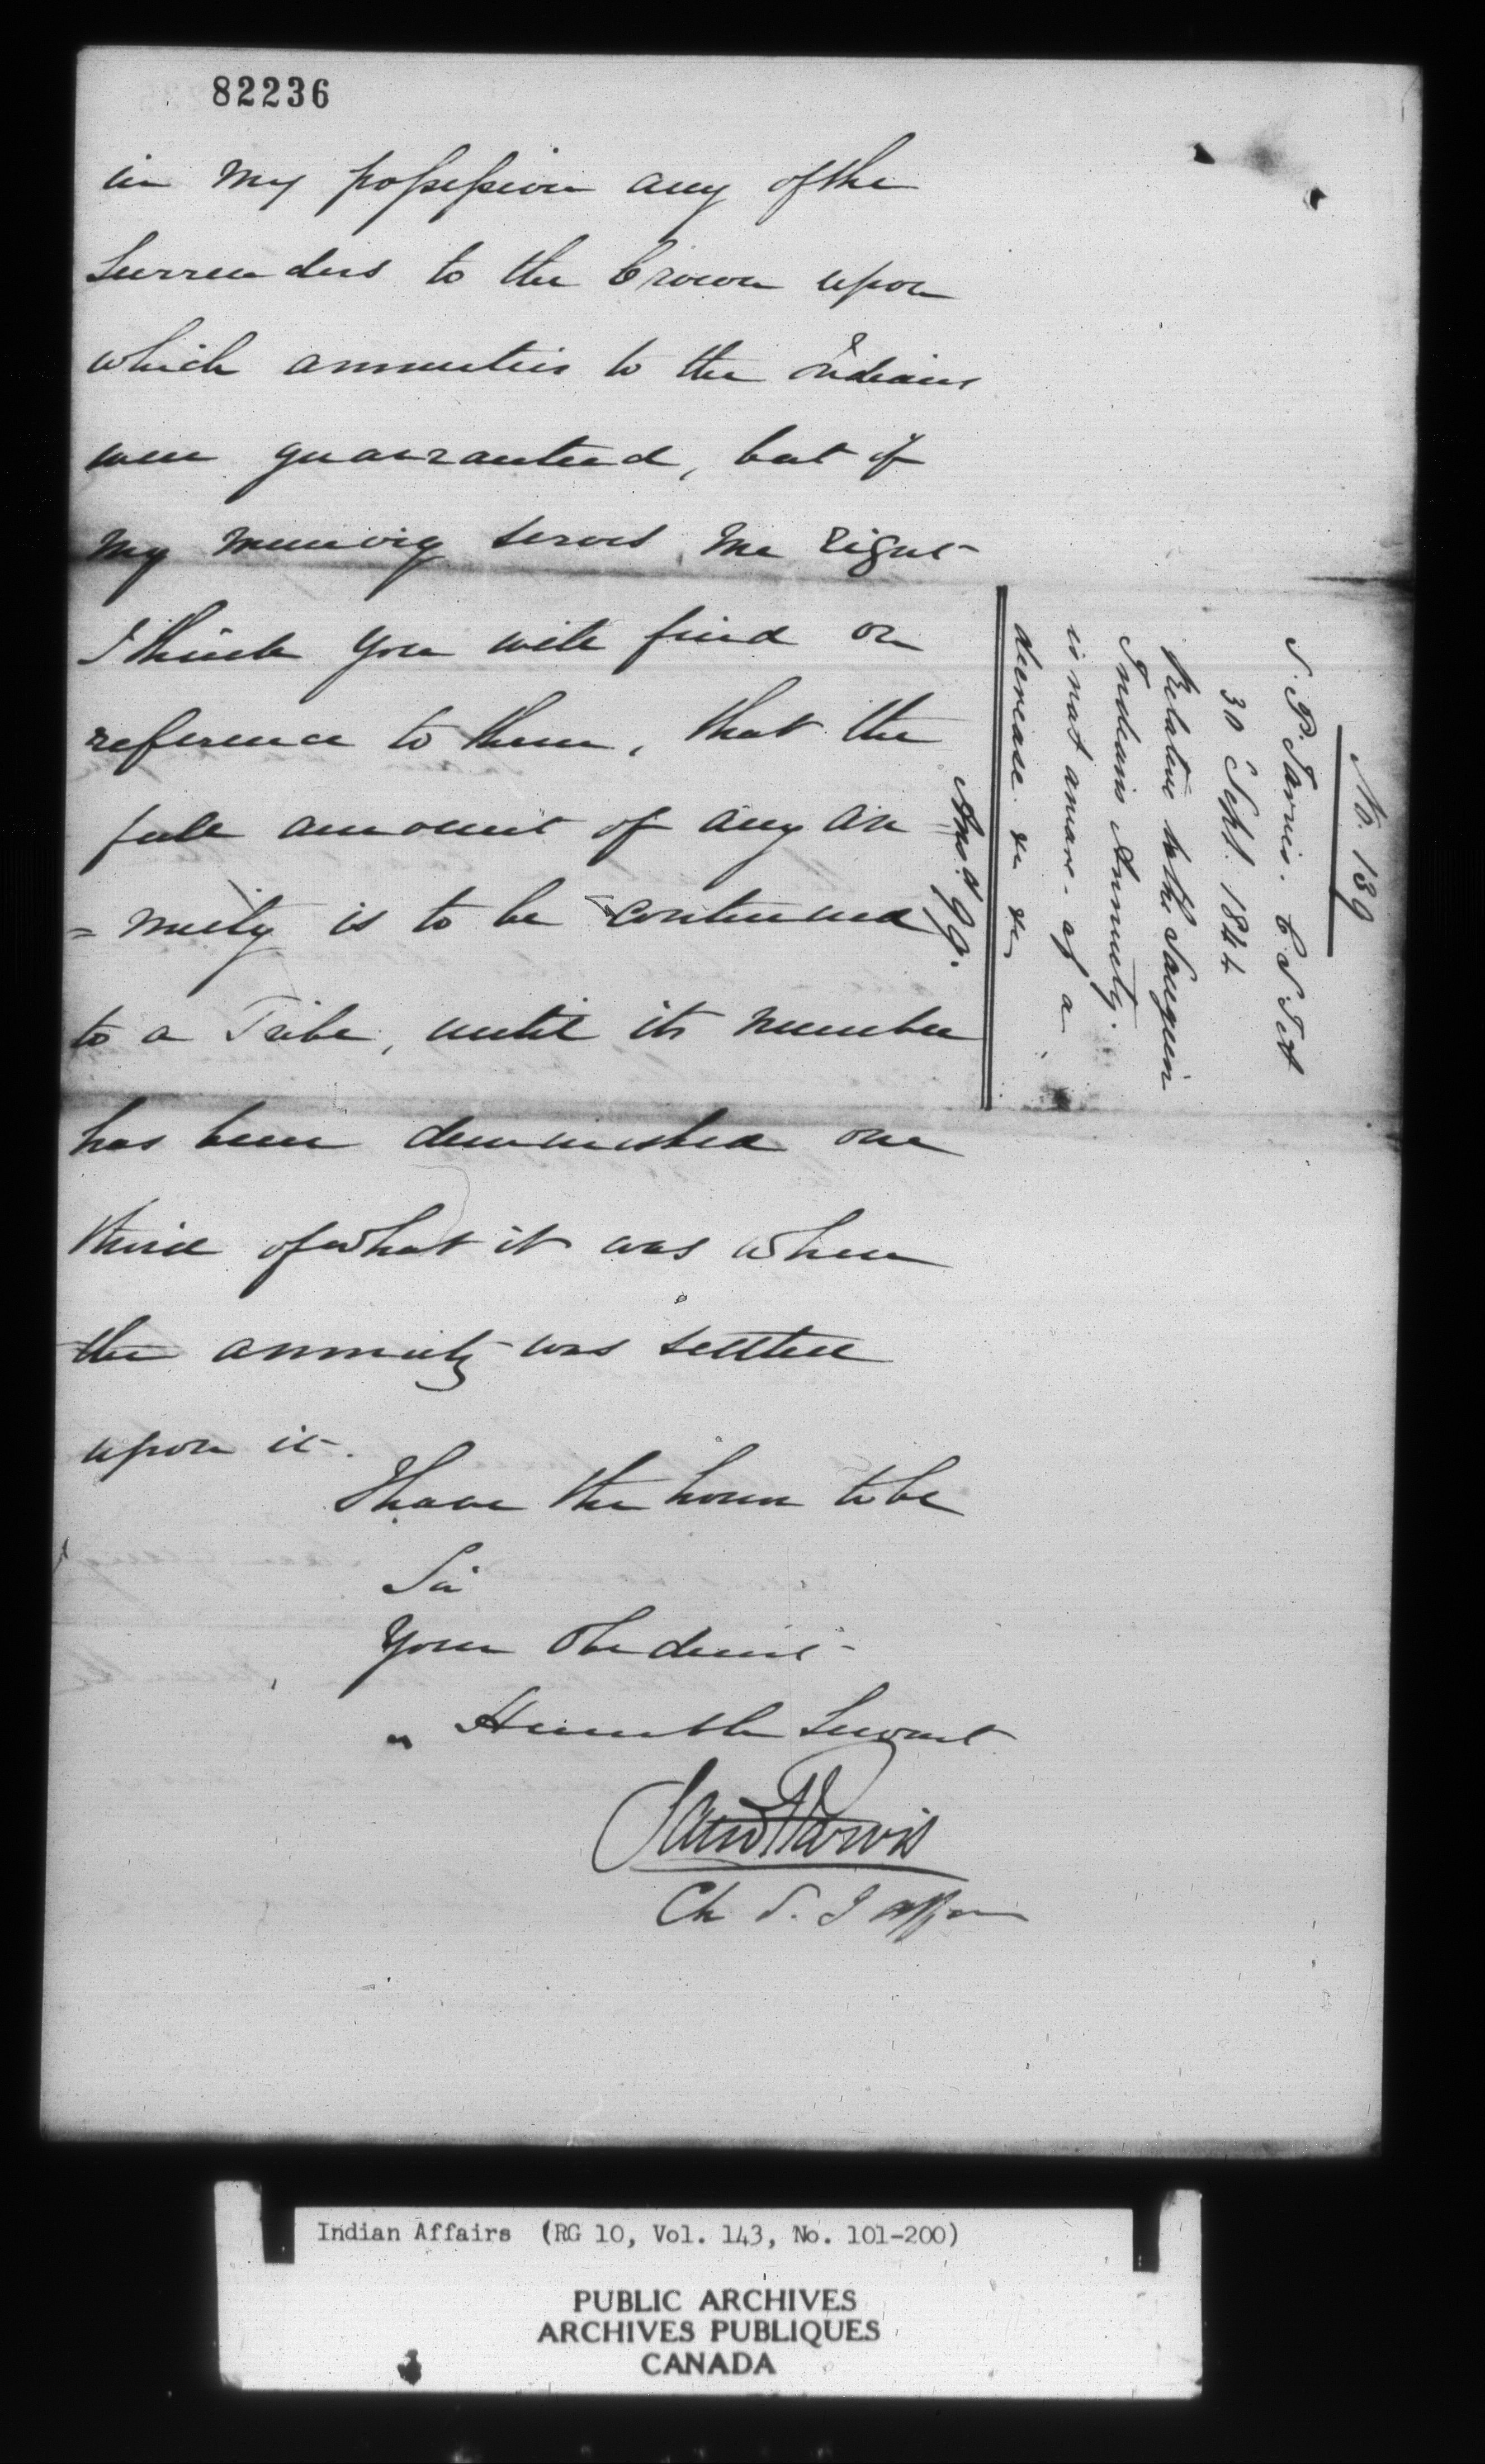 82236
in my possession any of the
Surrenders to the Crown upon
which annuities to the Indians
were guaranteed, but if
my memory serves me right
I think you will find on
reference to them, that the
full amount of any an
= nuity is to be continued
to a Tribe, until its number
has been diminished one
third of what it was when
the annuity was settled
upon it.
I have the honor to be
Sir
Your Obedient
Humble Servant
Saml P Jarvis
Ch S. I Affairs
No. 139
S. P. Jarvis. C S I A
30 Sept. 1844
Relative to the Saugeen
Indians Annuity.
is not aware of a
decrease &c &c
Ans.d 99.
Indian Affairs (RG 10, Vol. 143, No. 101-200)
PUBLIC ARCHIVES
ARCHIVES PUBLIQUES
CANADA